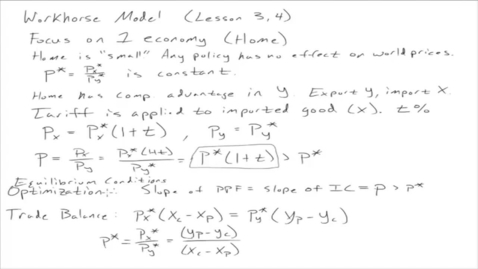 Workhorse Model (Lesson 3, 4)
Focus on 1 economy (Home)
Home is "small" Any policy has no effect on world prices.
P* = Px*/Py* is constant.
Home has comp. advantage in Y. Export Y, import X.
Tariff is applied to imported good (X). t%
Px = Px*(1+t) , Py = Py*
P = Px/Py = Px*(1+t)/Py* = P*(1+t) > P*
Equilibrium Conditions
Optimization: Slope of PPF = Slope of IC = P > P*
Trade Balance: Px*(Xc - Xp) = Py*(Yp - Yc)
P* = Px*/Py* = (Yp - Yc)/(Xc - Xp)